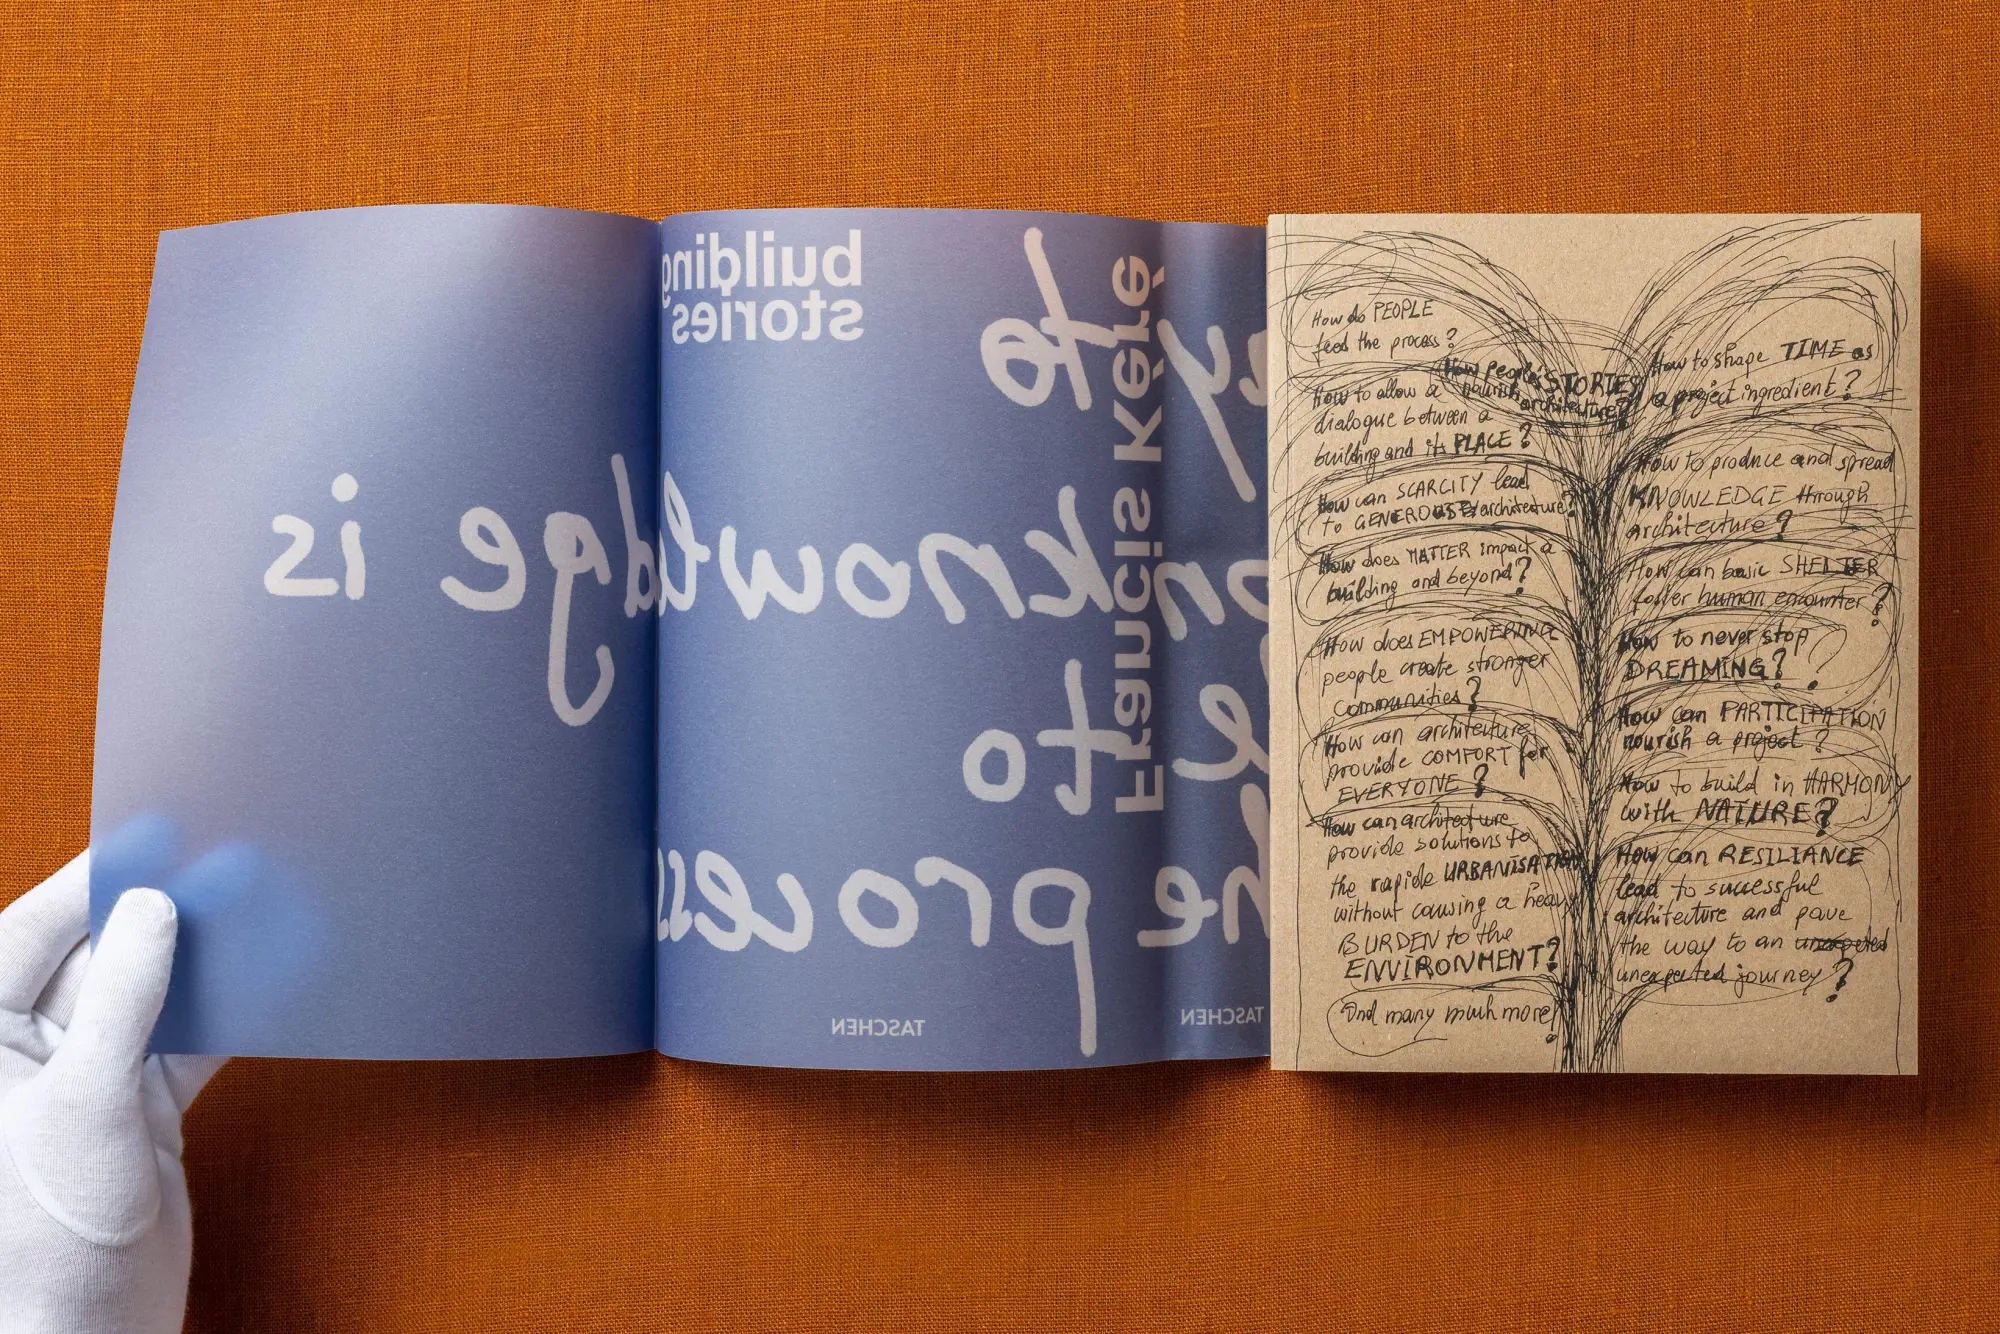 building
stories
Francis Kéré
to
knowledge is
to
process
TASCHEN
TASCHEN
How do PEOPLE
feed the process?
How people's STORIES
nourish
architecture?
How to shape TIME as
a project ingredient?
How to allow a
dialogue between a
building and its PLACE?
How can SCARCITY lead
to GENEROUS architecture?
How does MATTER impact a
building and beyond?
How does EMPOWERING
people create stronger
communities?
How can architecture
provide COMFORT for
EVERYONE?
How can architecture
provide solutions to
the rapide URBANISATION
without causing a heavy
BURDEN to the
ENVIRONMENT?
And many much more!
How to produce and spread
KNOWLEDGE through
architecture?
How can basic SHELTER
foster human encounter?
How to never stop
DREAMING?
How can PARTICIPATION
nourish a project?
How to build in HARMONY
with NATURE?
How can RESILIANCE
lead to successful
architecture and pave
the way to an unexpeted
unexpected journey?